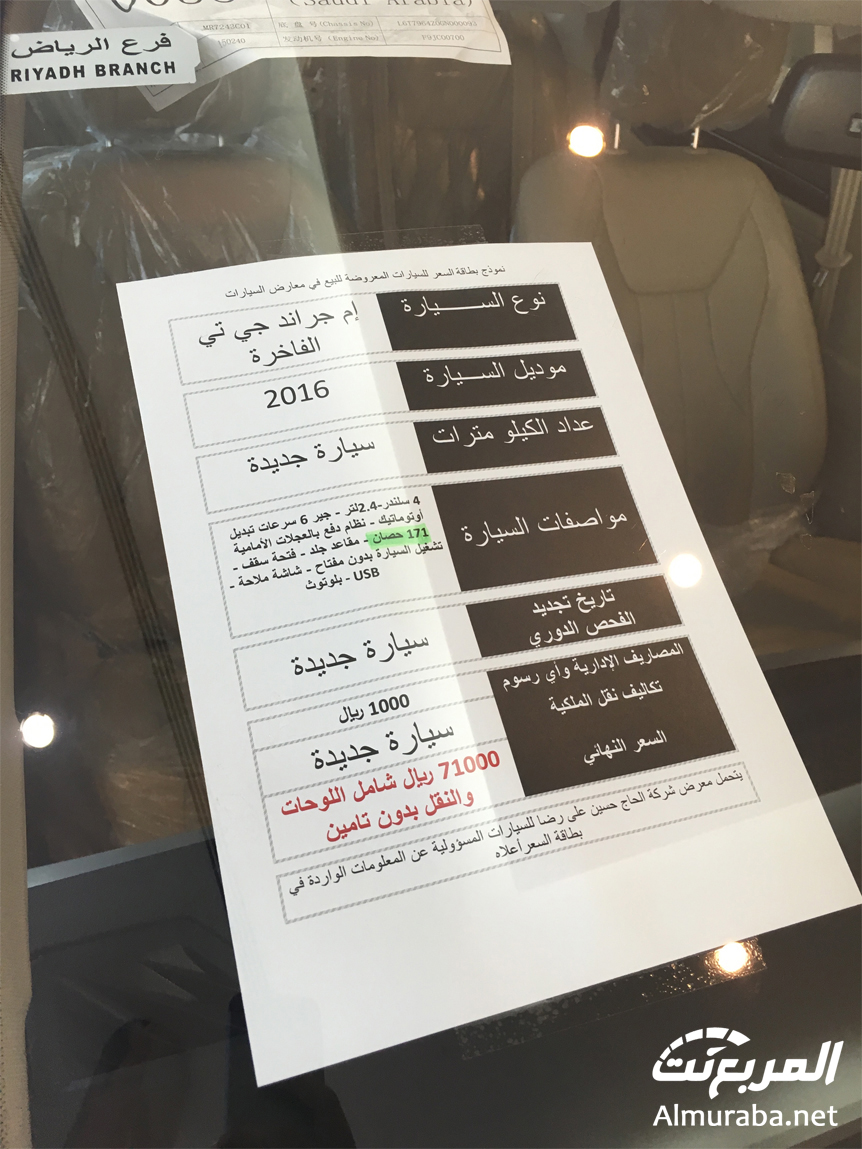 (Saudi Arabia)
(Chassis No)
(Engine No)
فرع الرياض
RIYADH BRANCH
نموذج بطاقة السعر للسيارات المعروضة للبيع في معارض السيارات
نوع الســـــيارة
إم جراند جي تي
الفاخرة
موديل الســـيارة
2016
عداد الكيلو مترات
سيارة جديدة
مواصفات السيارة
4 سلندر-2.4لتر - جير 6 سرعات تبديل
أوتوماتيك - نظام دفع بالعجلات الأمامية
171 حصان - مقاعد جلد - فتحة سقف -
تشغيل السيارة بدون مفتاح - شاشة ملاحة -
USB - بلوتوث
تاريخ تجديد
الفحص الدوري
سيارة جديدة
المصاريف الإدارية وأي رسوم
1000 ريال
تكاليف نقل الملكية
سيارة جديدة
السعر النهائي
71000 ريال شامل اللوحات
والنقل بدون تامين
يتحمل معرض شركة الحاج حسين على رضا للسيارات المسؤولية عن المعلومات الواردة في
بطاقة السعر أعلاه
المربع نت
Almuraba.net